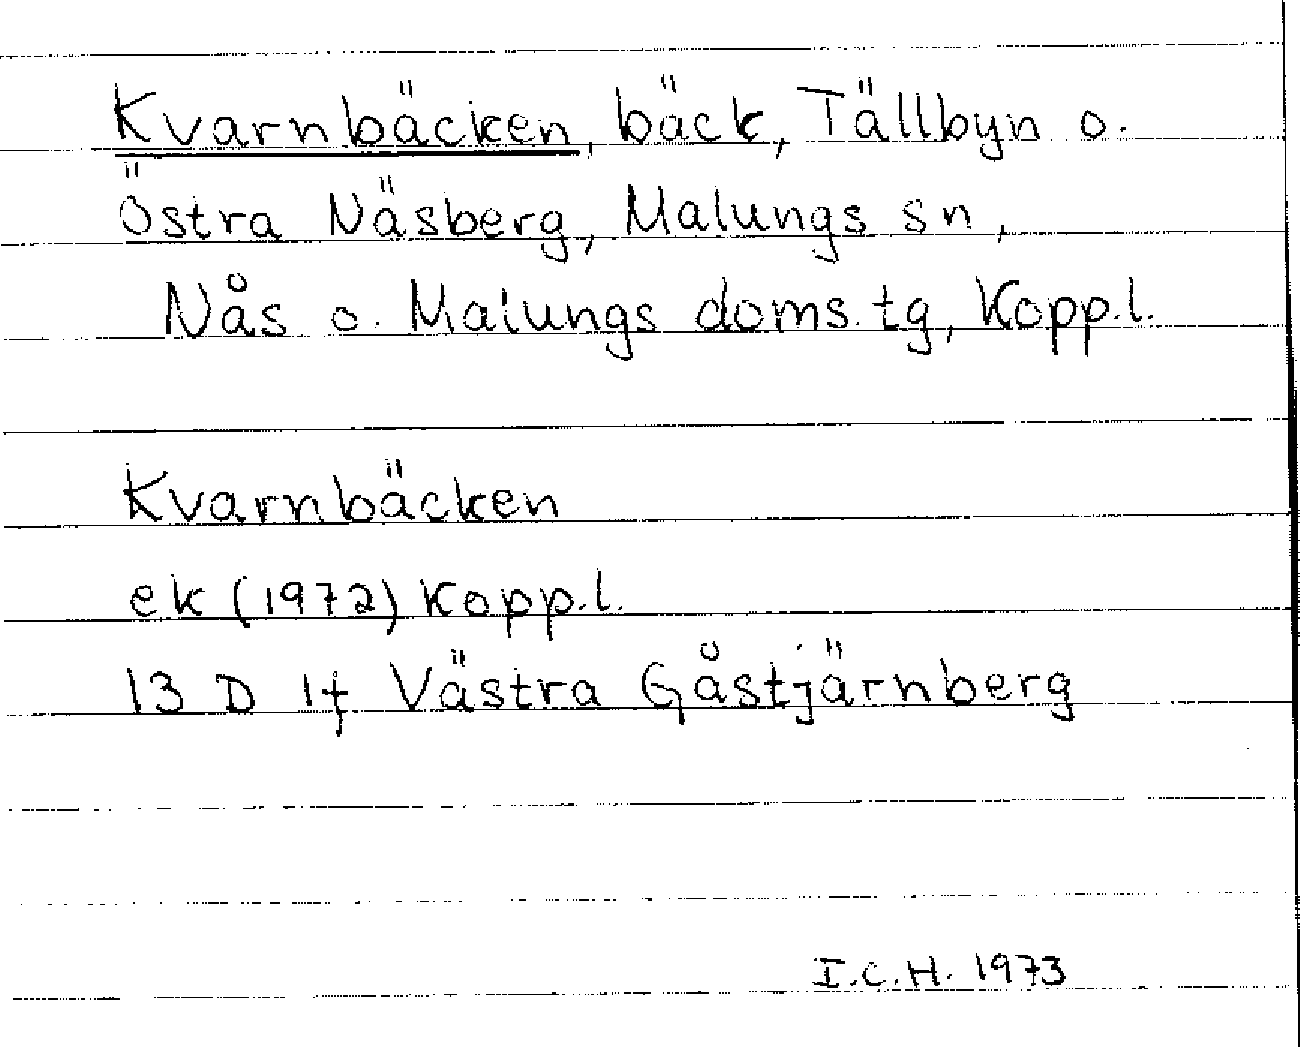 Kvarnbäcken, bäck, Tällbyn o.
Östra Näsberg, Malungs sn,
Nås o. Malungs doms. tg, Kopp.l.
Kvarnbäcken
ek (1972) Kopp.l.
13 D 1f Västra Gåstjärnberg
I.C.H. 1973